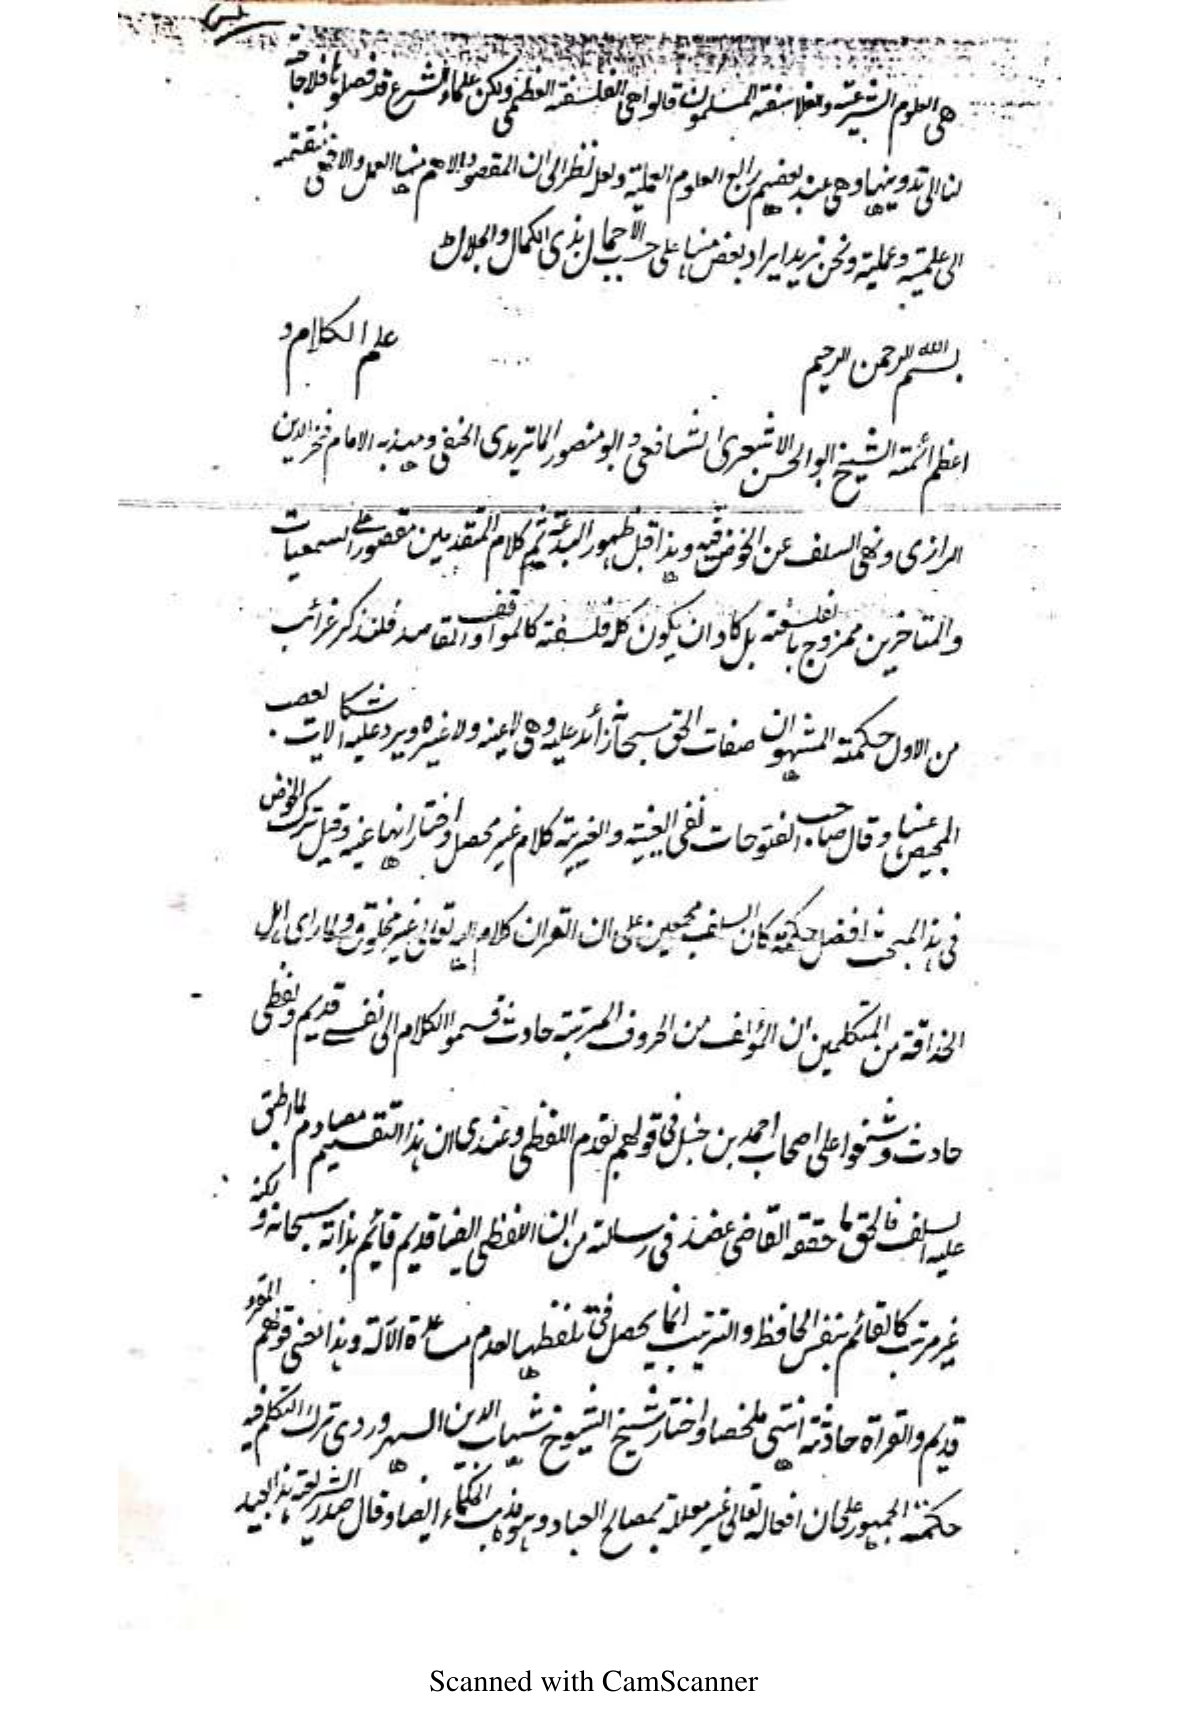 هى العلوم الشرعية وفلاسفة المسلمون قالوا هى الفلسفة العظمى ولكن علماء الشرع قد فصلوها فلا حاجة
لنا الى تدوينها وهى عند بعضهم رابع العلوم العملية ولعله نظر الى ان المقصود الاهم منها العمل والا فهى منقسمة
الى علمية وعملية ونحن نريد ايراد بعض منها على حسب الاجمال بذى الكمال والجلال
بسم الله الرحمن الرحيم علم الكلام و
اعظم ائمته الشيخ ابو الحسن الاشعرى الشافعى و ابو منصور الماتريدى الحنفى ومهذبه الامام فخر الدين
الرازى ونهى السلف عن الخوض فيه وهذا قبل ظهور البدعة ثم كلام المتقدمين مقصور على السمعيات
والمتاخرين ممزوج بالفلسفة بل كاد ان يكون كله فلسفة كالمواقف والمقاصد فلنذكر غرائب
من الاول حكمة المشهور ان صفات الحق سبحانه زائد عليه وهى لا عينه ولا غيره ويرد عليه اشكالات يصعب
المحيص عنها وقال صاحب الفتوحات نفى العينية والغيرية كلام غير محصل واختار انها عينه وقيل ترك الخوض
فى هذا المبحث افضل حكمة كان السلف مجمعين على ان القران كلام الله تعالى غير مخلوق ولما راى اهل
الحذاقة من المتكلمين ان المؤلف من الحروف المرتبة حادث قسموا الكلام الى نفسى قديم ولفظى
حادث وشنعوا على اصحاب احمد بن حنبل فى قولهم بقدم اللفظى وعندى ان هذا التقسيم مصادم لما اطبق
عليه السلف فالحق ما حققه القاضى عضد فى رسالته من ان اللفظى ايضا قديم قائم بذاته سبحانه ولكنه
غير مرتب كالقائم بنفس الحافظ والترتيب انما يحصل فى تلفظها لعدم مساعدة الآلة وهذا معنى قولهم المقرو
قديم والقراة حادثة انتهى ملخصا واختار شيخ الشيوخ شهاب الدين السهروردى ترك التكلم فيه
حكمة الجمهور على ان افعاله تعالى غير معللة بمصالح العباد وهو مذهب الحكماء ايضا وقال صدر الشريعة هذا بعيد
Scanned with CamScanner